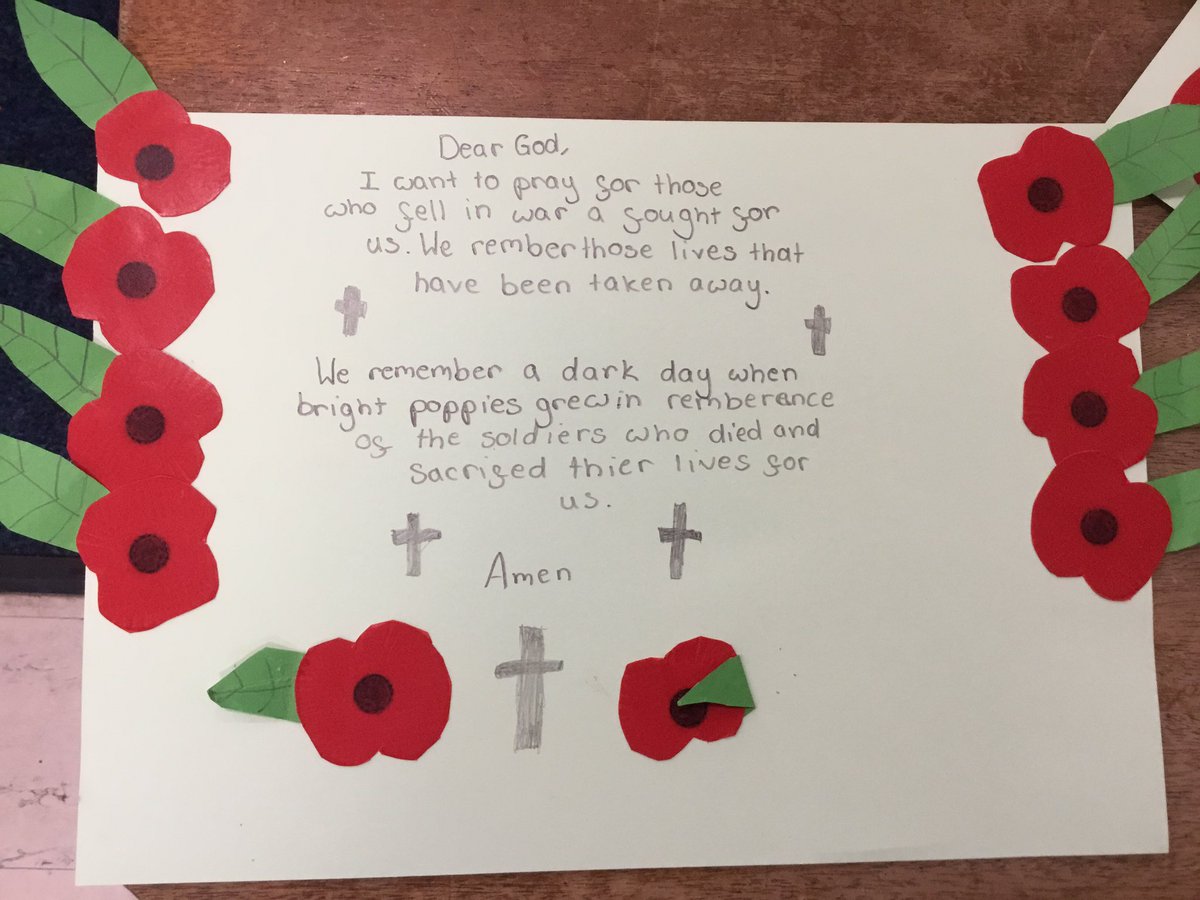 Dear God,
I want to pray for those
who fell in war a fought for
us. We rember those lives that
have been taken away.
We remember a dark day when
bright poppies grew in remberence
of the soldiers who died and
sacrifed thier lives for
us.
Amen